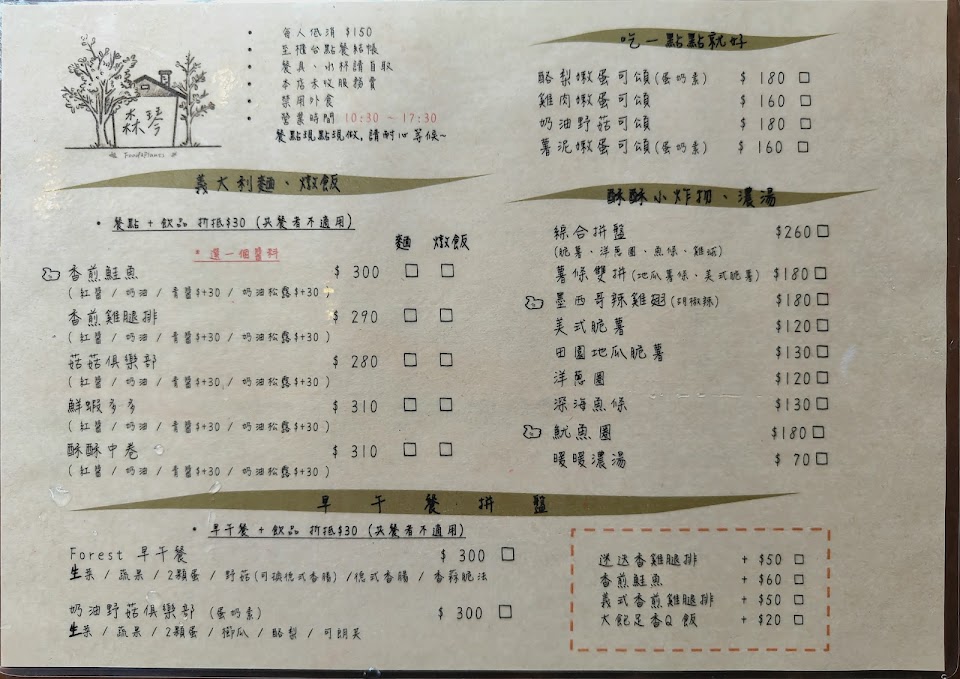 森琴
Food&Plants
• 每人低消 $150
• 至櫃台點餐結帳
• 餐具、水杯請自取
• 本店未收服務費
• 禁用外食
• 營業時間 10:30 ~ 17:30
餐點現點現做,請耐心等候~
義大利麵、燉飯
• 餐點 + 飲品 折抵$30 (共餐者不適用)
* 選一個醬料
麵 燉飯
香煎鮭魚 $ 300 □ □
( 紅醬 / 奶油 / 青醬$+30 / 奶油松露$+30 )
香煎雞腿排 $ 290 □ □
( 紅醬 / 奶油 / 青醬$+30 / 奶油松露$+30 )
菇菇俱樂部 $ 280 □ □
( 紅醬 / 奶油 / 青醬$+30 / 奶油松露$+30 )
鮮蝦多多 $ 310 □ □
( 紅醬 / 奶油 / 青醬$+30 / 奶油松露$+30 )
酥酥中卷 $ 310 □ □
( 紅醬 / 奶油 / 青醬$+30 / 奶油松露$+30 )
吃一點點就好
酪梨嫩蛋可頌(蛋奶素) $ 180 □
雞肉嫩蛋可頌 $ 160 □
奶油野菇可頌 $ 180 □
薯泥嫩蛋可頌(蛋奶素) $ 160 □
酥酥小炸物、濃湯
綜合拼盤 $260 □
(脆薯、洋蔥圈、魚條、雞球)
薯條雙拼(地瓜薯條、美式脆薯) $180 □
墨西哥辣雞翅(胡椒辣) $180 □
美式脆薯 $120 □
田園地瓜脆薯 $130 □
洋蔥圈 $120 □
深海魚條 $130 □
魷魚圈 $180 □
暖暖濃湯 $ 70 □
早午餐拼盤
• 早午餐 + 飲品 折抵$30 (共餐者不適用)
Forest 早午餐 $ 300 □
生菜 / 蔬果 / 2顆蛋 / 野菇(可換德式香腸) /德式香腸 / 香蒜脆法
奶油野菇俱樂部 (蛋奶素) $ 300 □
生菜 / 蔬果 / 2顆蛋 / 櫛瓜 / 酪梨 / 可朗芙
迷迭香雞腿排 + $50 □
香煎鮭魚 + $60 □
義式香煎雞腿排 + $50 □
大飽足香Q飯 + $20 □